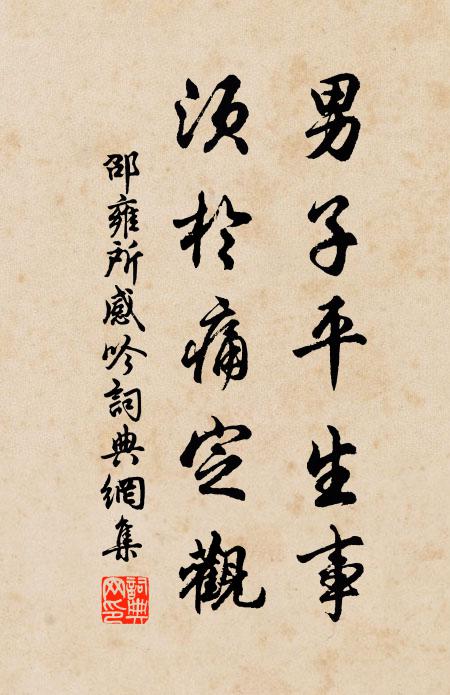 男子平生事
須於痛定觀
邵雍所感吟詞典網集
詞典網印